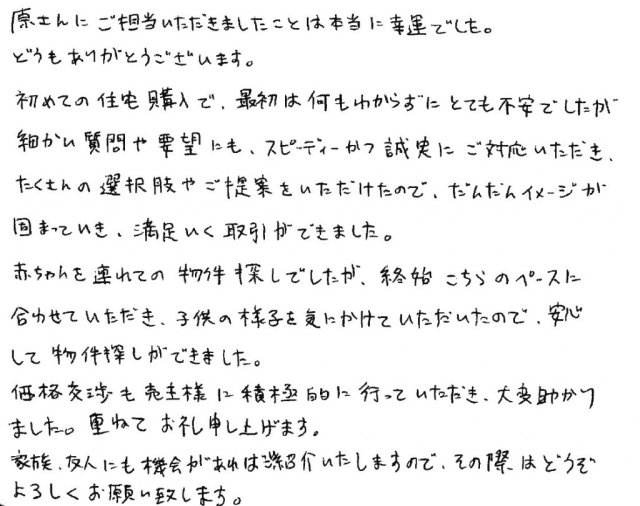 原さんにご担当いただきましたことは本当に幸運でした。
どうもありがとうございます。
初めての住宅購入で、最初は何もわからずにとても不安でしたが
細かい質問や要望にも、スピーディーかつ誠実にご対応いただき、
たくさんの選択肢やご提案をいただけたので、だんだんイメージが
固まっていき、満足いく取引ができました。
赤ちゃんを連れての物件探しでしたが、終始こちらのペースに
合わせていただき、子供の様子を気にかけていただいたので、安心
して物件探しができました。
価格交渉も売主様に積極的に行っていただき、大変助かり
ました。重ねてお礼申し上げます。
家族、友人にも機会があればご紹介いたしますので、その際はどうぞ
よろしくお願い致します。